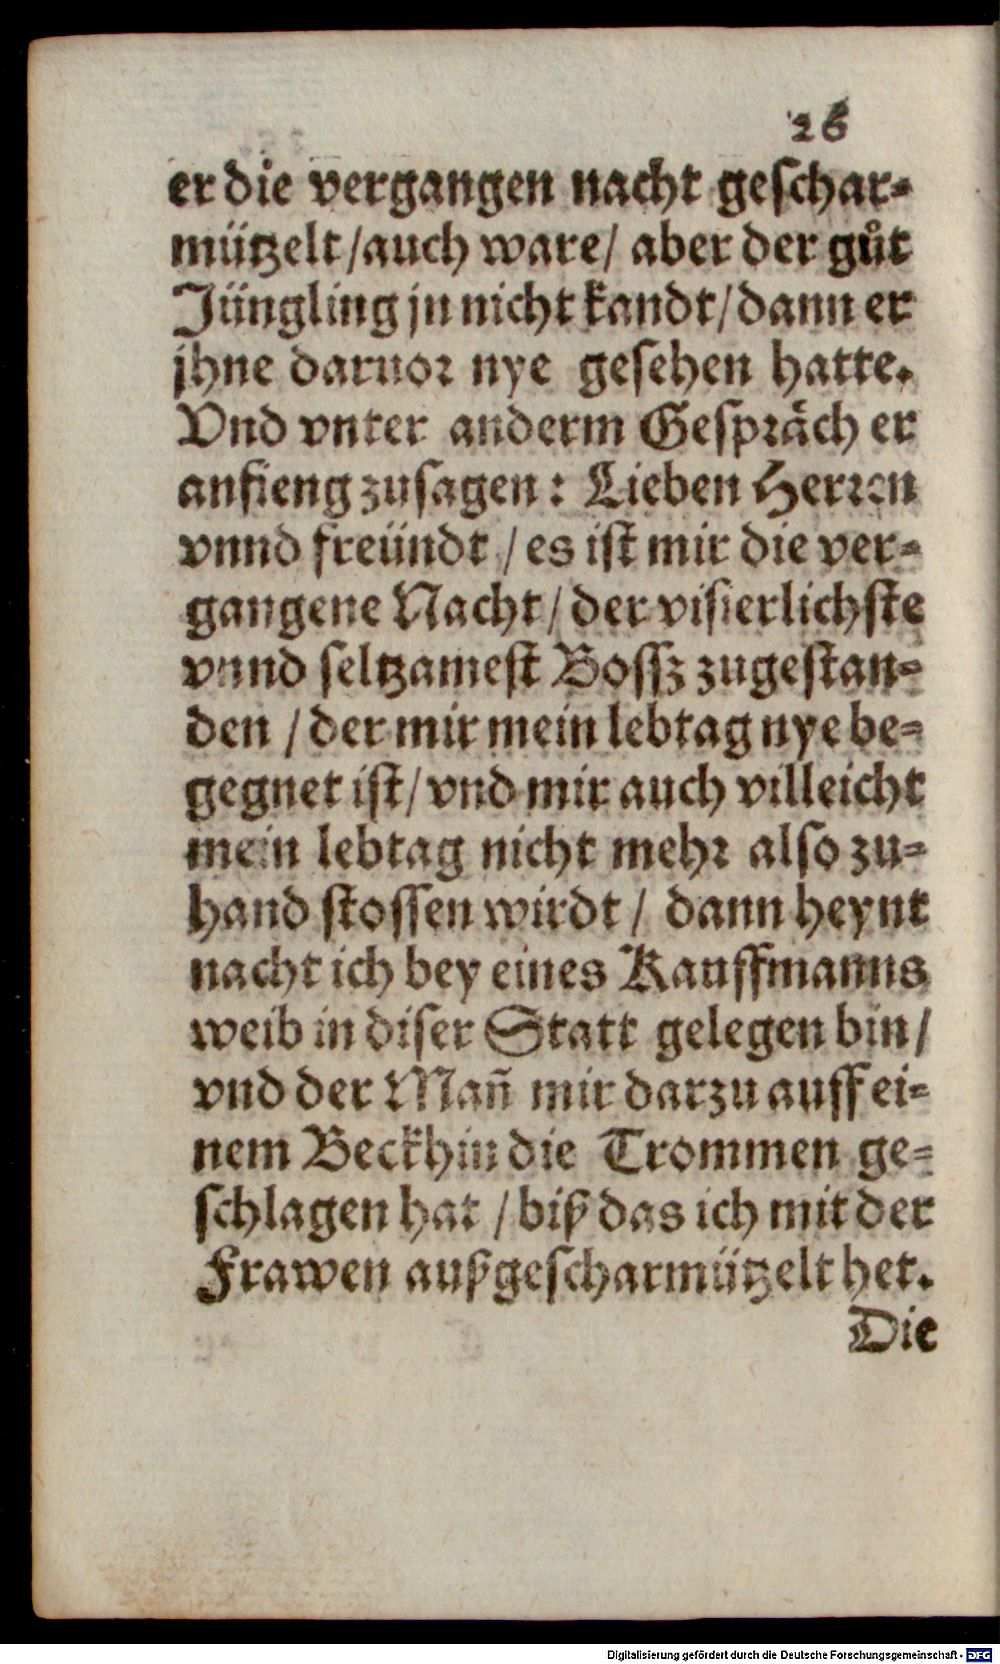 26
er die vergangen nacht geschar⸗
mützelt/auch ware/ aber der gůt
Jüngling jn nicht kandt/dann er
jhne daruor nye gesehen hatte.
Vnd vnter anderm Gespräch er
anfieng zusagen: Lieben Herren
vnnd freündt / es ist mir die ver⸗
gangene Nacht/ der visierlichste
vnnd seltzamest Bossz zugestan⸗
den / der mir mein lebtag nye be⸗
gegnet ist/ vnd mir auch villeicht
mein lebtag nicht mehr also zu⸗
hand stossen wirdt / dann heynt
nacht ich bey eines Kauffmanns
weib in diser Statt gelegen bin/
vnd der Mañ mir darzu auff ei⸗
nem Beckhin die Trommen ge⸗
schlagen hat / biß das ich mit der
Frawen außgescharmützelt het.
Die
Digitalisierung gefördert durch die Deutsche Forschungsgemeinschaft - DFG